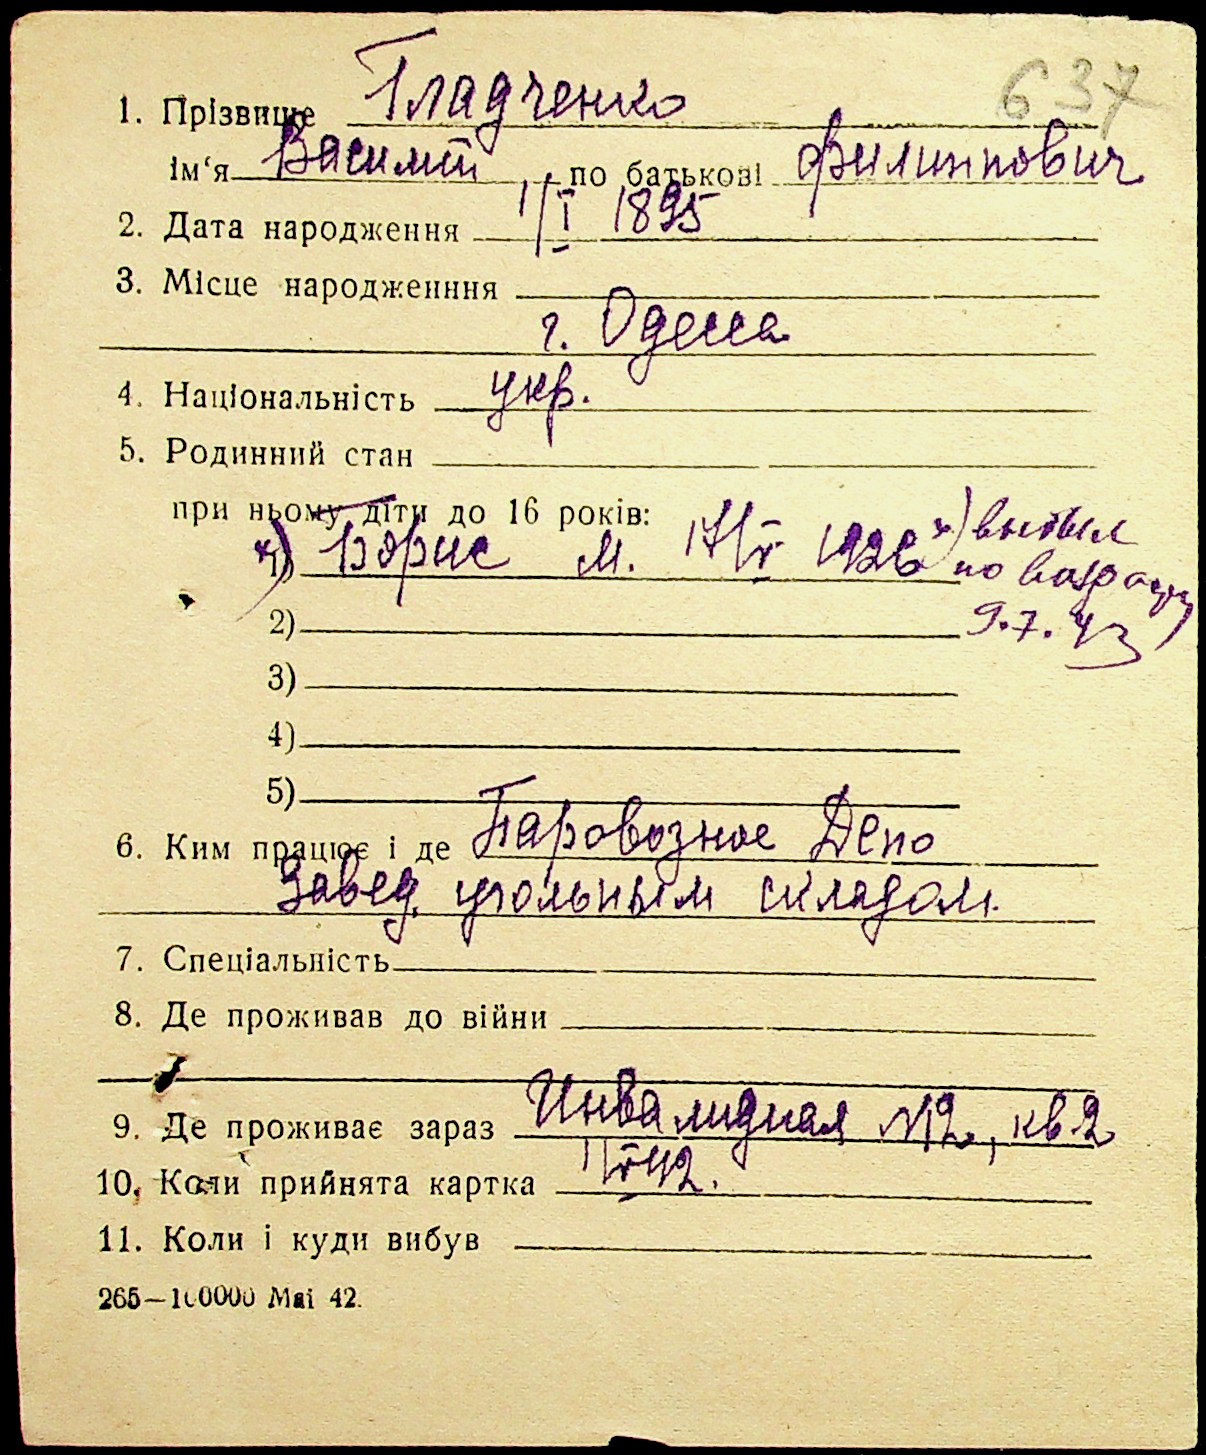 637
1. Прізвище Гладченко
ім‘я Василий по батькові Филиппович
2. Дата народження 1/I 1895
3. Місце народженння
г. Одесса
4. Національність укр.
5. Родинний стан
при ньому діти до 16 років:
x) 1) Борис м. 17/V 1926 x) выбыл
по возрасту
2) 9.7.43
3)
4)
5)
6. Ким працює і де Паровозное Депо
Завед. угольным складом.
7. Спеціальність
8. Де проживав до війни
9. Де проживає зараз Инвалидная №2, кв 2
10. Коли прийнята картка 1/V 42.
11. Коли і куди вибув
265—100000 Маі 42.